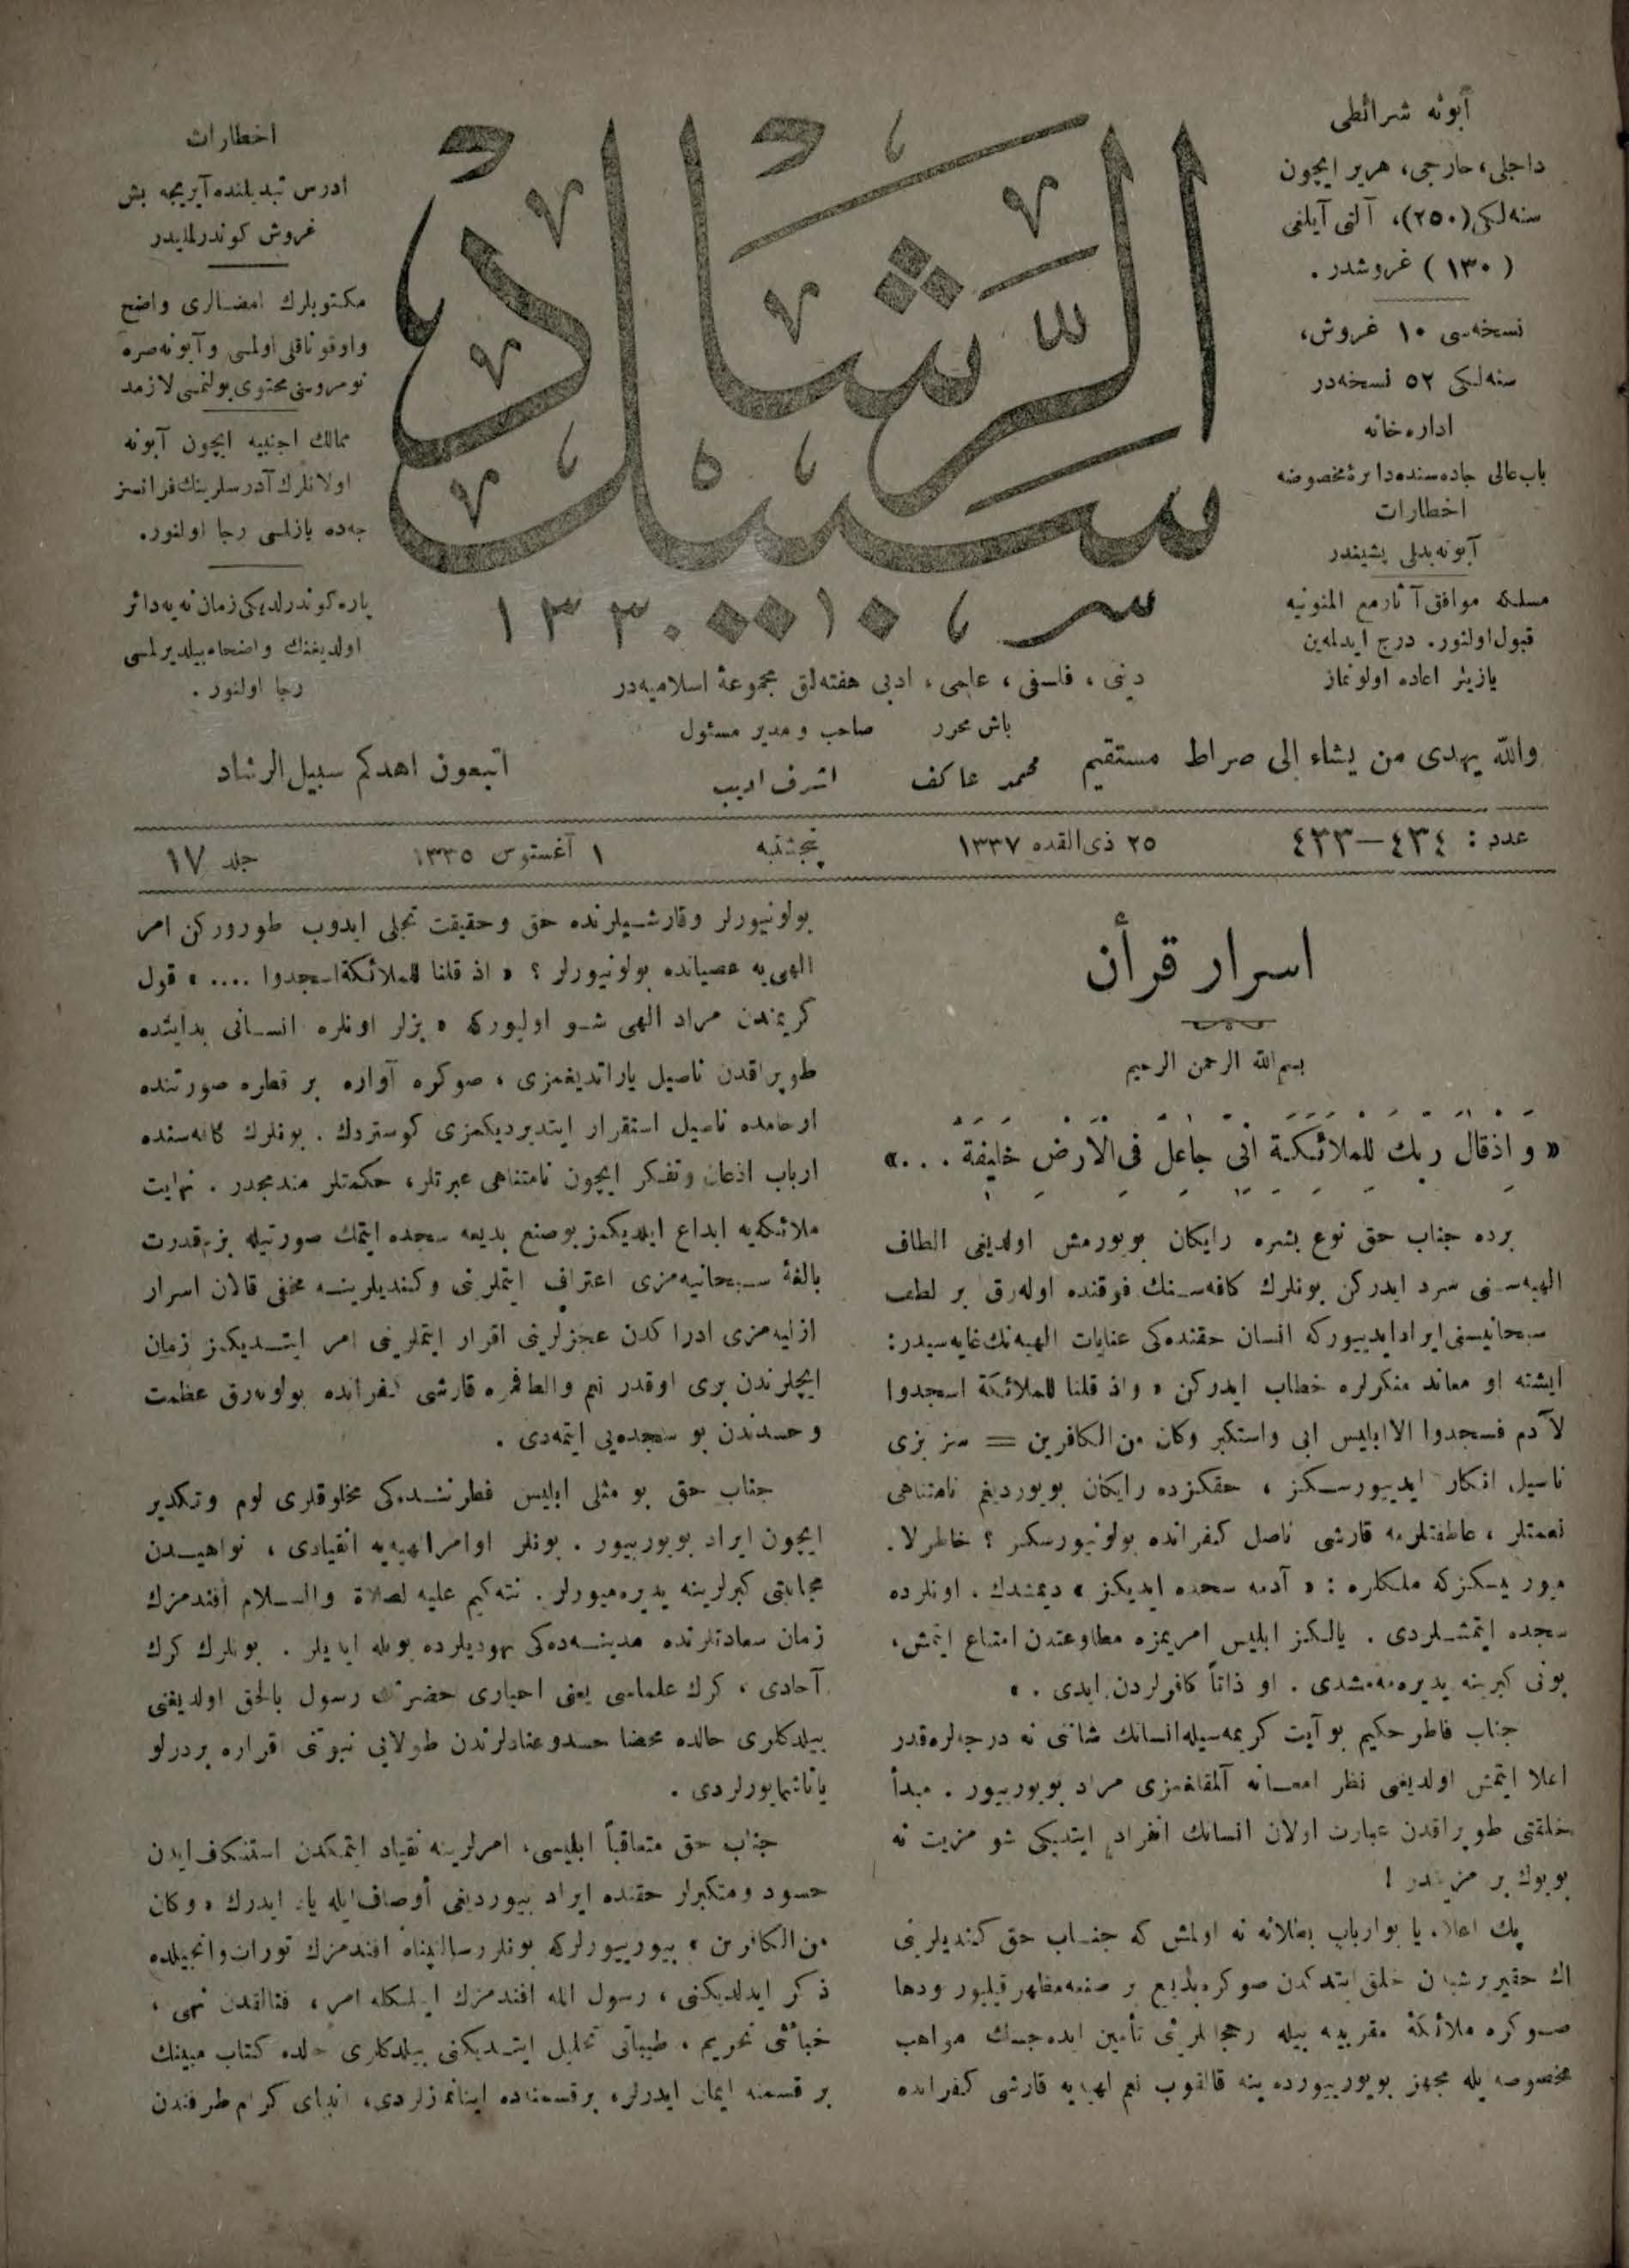 آبونه شرائطی
داخلی، خارجی، هریر ایچون
سنه‌لکی (٢٥٠)، آلتی آیلغی
(١٣٠) غروشدر.
نسخه‌سی ١٠ غروش،
سنه‌لکی ٥٢ نسخه‌در
اداره‌خانه
باب عالی جاده‌سنده دائرهٔ مخصوصه
اخطارات
آبونه بدلی پشیندر
مسلکه موافق آثار مع الممنونیه
قبول اولنور. درج ایدلمه‌ین
یازیلر اعاده اولونماز
سبيل الرشاد
١٣٣٠
دینی، فلسفی، علمی، ادبی هفته‌لق مجموعهٔ اسلامیه‌در
باش محرر
صاحب و مدیر مسئول
محمد عاکف
اشرف ادیب
اخطارات
ادرس تبدیلنده آیریجه بش
غروش کوندرلملیدر
مکتوبلرك امضالری واضح
واوقوناقلی اولمسی وآبونه صره
نومروسنی محتوی بولنمسی لازمدر
ممالك اجنبیه ایچون آبونه
اولانلرك آدرسلرینك فرانسز
جه‌ده یازلمسی رجا اولنور.
پاره کوندرلدیکی زمان نه‌یه دائر
اولدیغنك واضحاً بیلدیرلمسی
رجا اولنور.
والله يهدی من يشاء إلی صراط مستقيم
اتبعون اهدكم سبيل الرشاد
عدد : ٤٣٤—٤٣٣
٢٥ ذی القعده ١٣٣٧
پنجشنبه
١ آغستوس ١٣٣٥
جلد ١٧
اسرار قرأن
بسم الله الرحمن الرحيم
« وَ اِذْ قَالَ رَبُّكَ لِلْمَلَائِكَةِ اِنِّی جَاعِلٌ فِی الْاَرْضِ خَلِيفَةً . . . »
برده جناب حق نوع بشره رایکان بویورمش اولدیغی الطاف
الهیه‌سنی سرد ایدرکن بونلرك کافه‌سنك فوقنده اوله‌رق بر لطف
سبحانیسنی ایراد ایدییورکه انسان حقنده‌کی عنایات الهیه‌نك غایه‌سیدر:
ایشته او معاند منکرلره خطاب ایدرکن « واذ قلنا للملائكة اسجدوا
لآدم فسجدوا الا ابليس ابی واستکبر وکان من الکافرين = سز بزی
ناصیل انکار ایدییورسکز، حقکزده رایکان بویوردیغم نامتناهی
نعمتلر، عاطفتلرمه قارشی ناصل کفرانده بولونیورسکز؟ خاطرلا.
میور میسکزکه ملکلره : « آدمه سجده ایدیکز » دیمشدك. اونلرده
سجده ایتمشلردی. یالکز ابلیس امریمزه مطاوعتدن امتناع ایتمش،
بونی کبرینه یدیره‌مه‌مشدی. او ذاتاً کافرلردن ایدی. »
جناب فاطر حکیم بو آیت کریمه‌سیله انسانك شاننی نه درجه‌لره قدر
اعلا ایتمش اولدیغی نظر امعانه آلمقلغمزی مراد بویورییور. مبدأ
خلقتی طوپراقدن عبارت اولان انسانك انفراد ایتدیکی شو مزیت نه
بویوك بر مزیتدر!
پك اعلا، یا بو ارباب بطلانه نه اولمش که جناب حق کندیلرینی
اك حقیر بر شیدن خلق ایتدکدن صوکره بدیع بر صنعه مظهر قیلیور ودها
صوکره ملائکهٔ مقربینه بیله رجحانلرینی تأمین ایده‌جك مواهب
مخصوصه ایله مجهز بویورییورده ینه قالقوب نعم الهیه‌یه قارشی کفرانده
بولونیورلر وقارشیلرنده حق وحقیقت تجلی ایدوب طورورکن امر
الهی‌یه عصیانده بولونیورلر؟ « اذ قلنا للملائكة اسجدوا .... » قول
کریمندن مراد الهی شو اولیورکه « بزلر اونلره انسانی بدایتده
طوپراقدن ناصیل یاراتدیغمزی، صوکره آواره بر قطره صورتنده
ارحامده ناصیل استقرار ایتدیردیکمزی کوستردك. بونلرك کافه‌سنده
ارباب اذعان وتفکر ایچون نامتناهی عبرتلر، حکمتلر مندمجدر. نهایت
ملائکه‌یه ابداع ایلدیکمز بو صنع بدیعه سجده ایتمك صورتیله بزم قدرت
بالغهٔ سبحانیه‌مزی اعتراف ایتملرینی وکندیلرینه مخفی قالان اسرار
ازلیه‌مزی ادراکدن عجزلرینی اقرار ایتملرینی امر ایتدیکمز زمان
ایچلرندن بری اوقدر نعم والطافمزه قارشی کفرانده بولونه‌رق عظمت
وحسدندن بو سجده‌یی ایتمه‌دی.
جناب حق بو مثلی ابلیس فطرتنده‌کی مخلوقلری لوم وتکدیر
ایچون ایراد بویورییور. بونلر اوامر الهیه‌یه انقیادی، نواهیدن
مجانبتی کبرلرینه یدیره‌میورلر. نته‌کیم علیه الصلاة والسلام افندمزك
زمان سعادتلرنده مدینه‌ده‌کی یهودیلرده بویله ایدیلر. بونلرك کرك
آحادی، کرك علماسی یعنی احباری حضرتك رسول بالحق اولدیغنی
بیلدکلری حالده محضا حسد وعنادلرندن طولایی نبوتنی اقراره بردرلو
یاناشمایورلردی.
جناب حق متعاقباً ابلیسی، امرلرینه انقیاد ایتمکدن استنکاف ایدن
حسود ومتکبرلر حقنده ایراد بیوردیغی أوصاف ایله یاد ایدرك « وکان
من الکافرين » بیورییورلرکه بونلر رسالتپناه افندمزك تورات وانجیلده
ذکر ایدلدیکنی، رسول الله افندمزك ایلیکله امر، فنالقدن نهی،
خبائثی تحریم، طیباتی تحلیل ایتدیکنی بیلدکلری حالده کتاب مبینك
بر قسمنه ایمان ایدرلر، بر قسمنه‌ده اینانمازلردی، انبیای کرام طرفندن